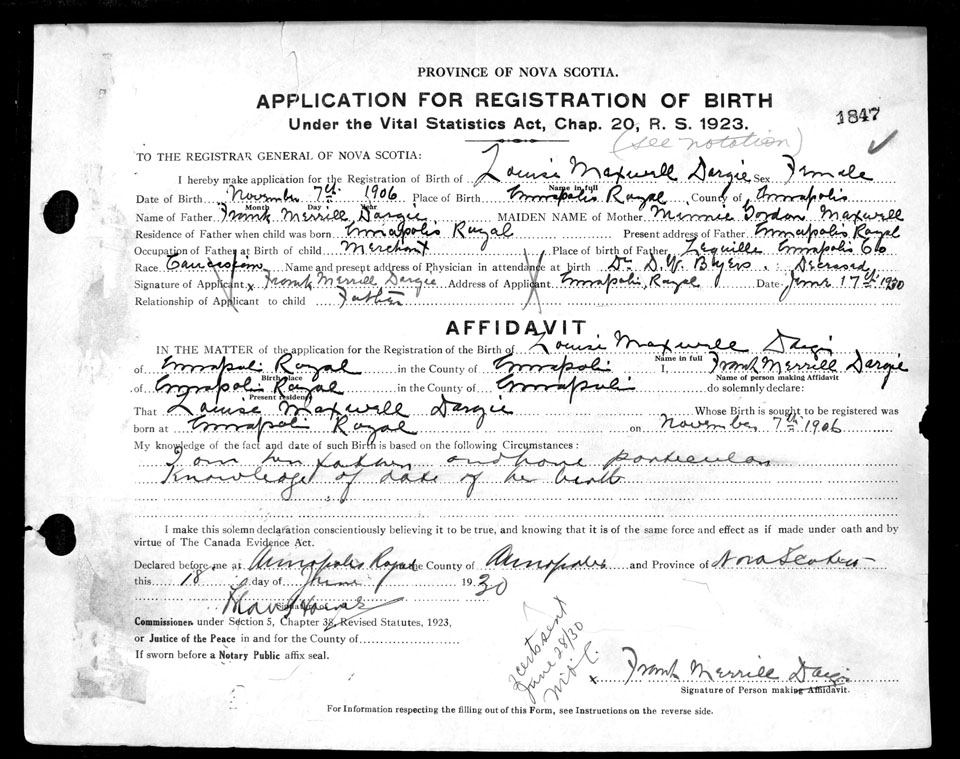 PROVINCE OF NOVA SCOTIA.
APPLICATION FOR REGISTRATION OF BIRTH
1847
Under the Vital Statistics Act, Chap. 20, R. S. 1923.
(see notation)
TO THE REGISTRAR GENERAL OF NOVA SCOTIA:
I hereby make application for the Registration of Birth of Louise Maxwell Dargie Sex Female
Name in full
Date of Birth November 7th 1906 Place of Birth Annapolis Royal County of Annapolis
Month Day Year
Name of Father Frank Merrill Dargie MAIDEN NAME of Mother Minnie Gordon Maxwell
Residence of Father when child was born Annapolis Royal Present address of Father Annapolis Royal
Occupation of Father at Birth of child Merchant Place of birth of Father Lequille Annapolis Co
Race Caucasian Name and present address of Physician in attendance at birth Dr. D. W. Byers Deceased
Signature of Applicant x Frank Merrill Dargie Address of Applicant Annapolis Royal Date June 17th 1930
Relationship of Applicant to child Father
AFFIDAVIT
IN THE MATTER of the application for the Registration of the Birth of Louise Maxwell Dargie
Name in full
of Annapolis Royal in the County of Annapolis I, Frank Merrill Dargie
Birth place Name of person making Affidavit
of Annapolis Royal in the County of Annapolis do solemnly declare:
Present residence
That Louise Maxwell Dargie Whose Birth is sought to be registered was
born at Annapolis Royal on November 7th 1906
My knowledge of the fact and date of such Birth is based on the following Circumstances:
I am her father and have particular
Knowledge of date of her birth
I make this solemn declaration conscientiously believing it to be true, and knowing that it is of the same force and effect as if made under oath and by
virtue of The Canada Evidence Act.
Declared before me at Annapolis Royal the County of Annapolis and Province of Nova Scotia
this 18 day of June 1930
Commissioner under Section 5, Chapter 38, Revised Statutes, 1923,
or Justice of the Peace in and for the County of
If sworn before a Notary Public affix seal.
2 certs sent
June 28/30
x Frank Merrill Dargie
Signature of Person making Affidavit.
For Information respecting the filling out of this Form, see Instructions on the reverse side.